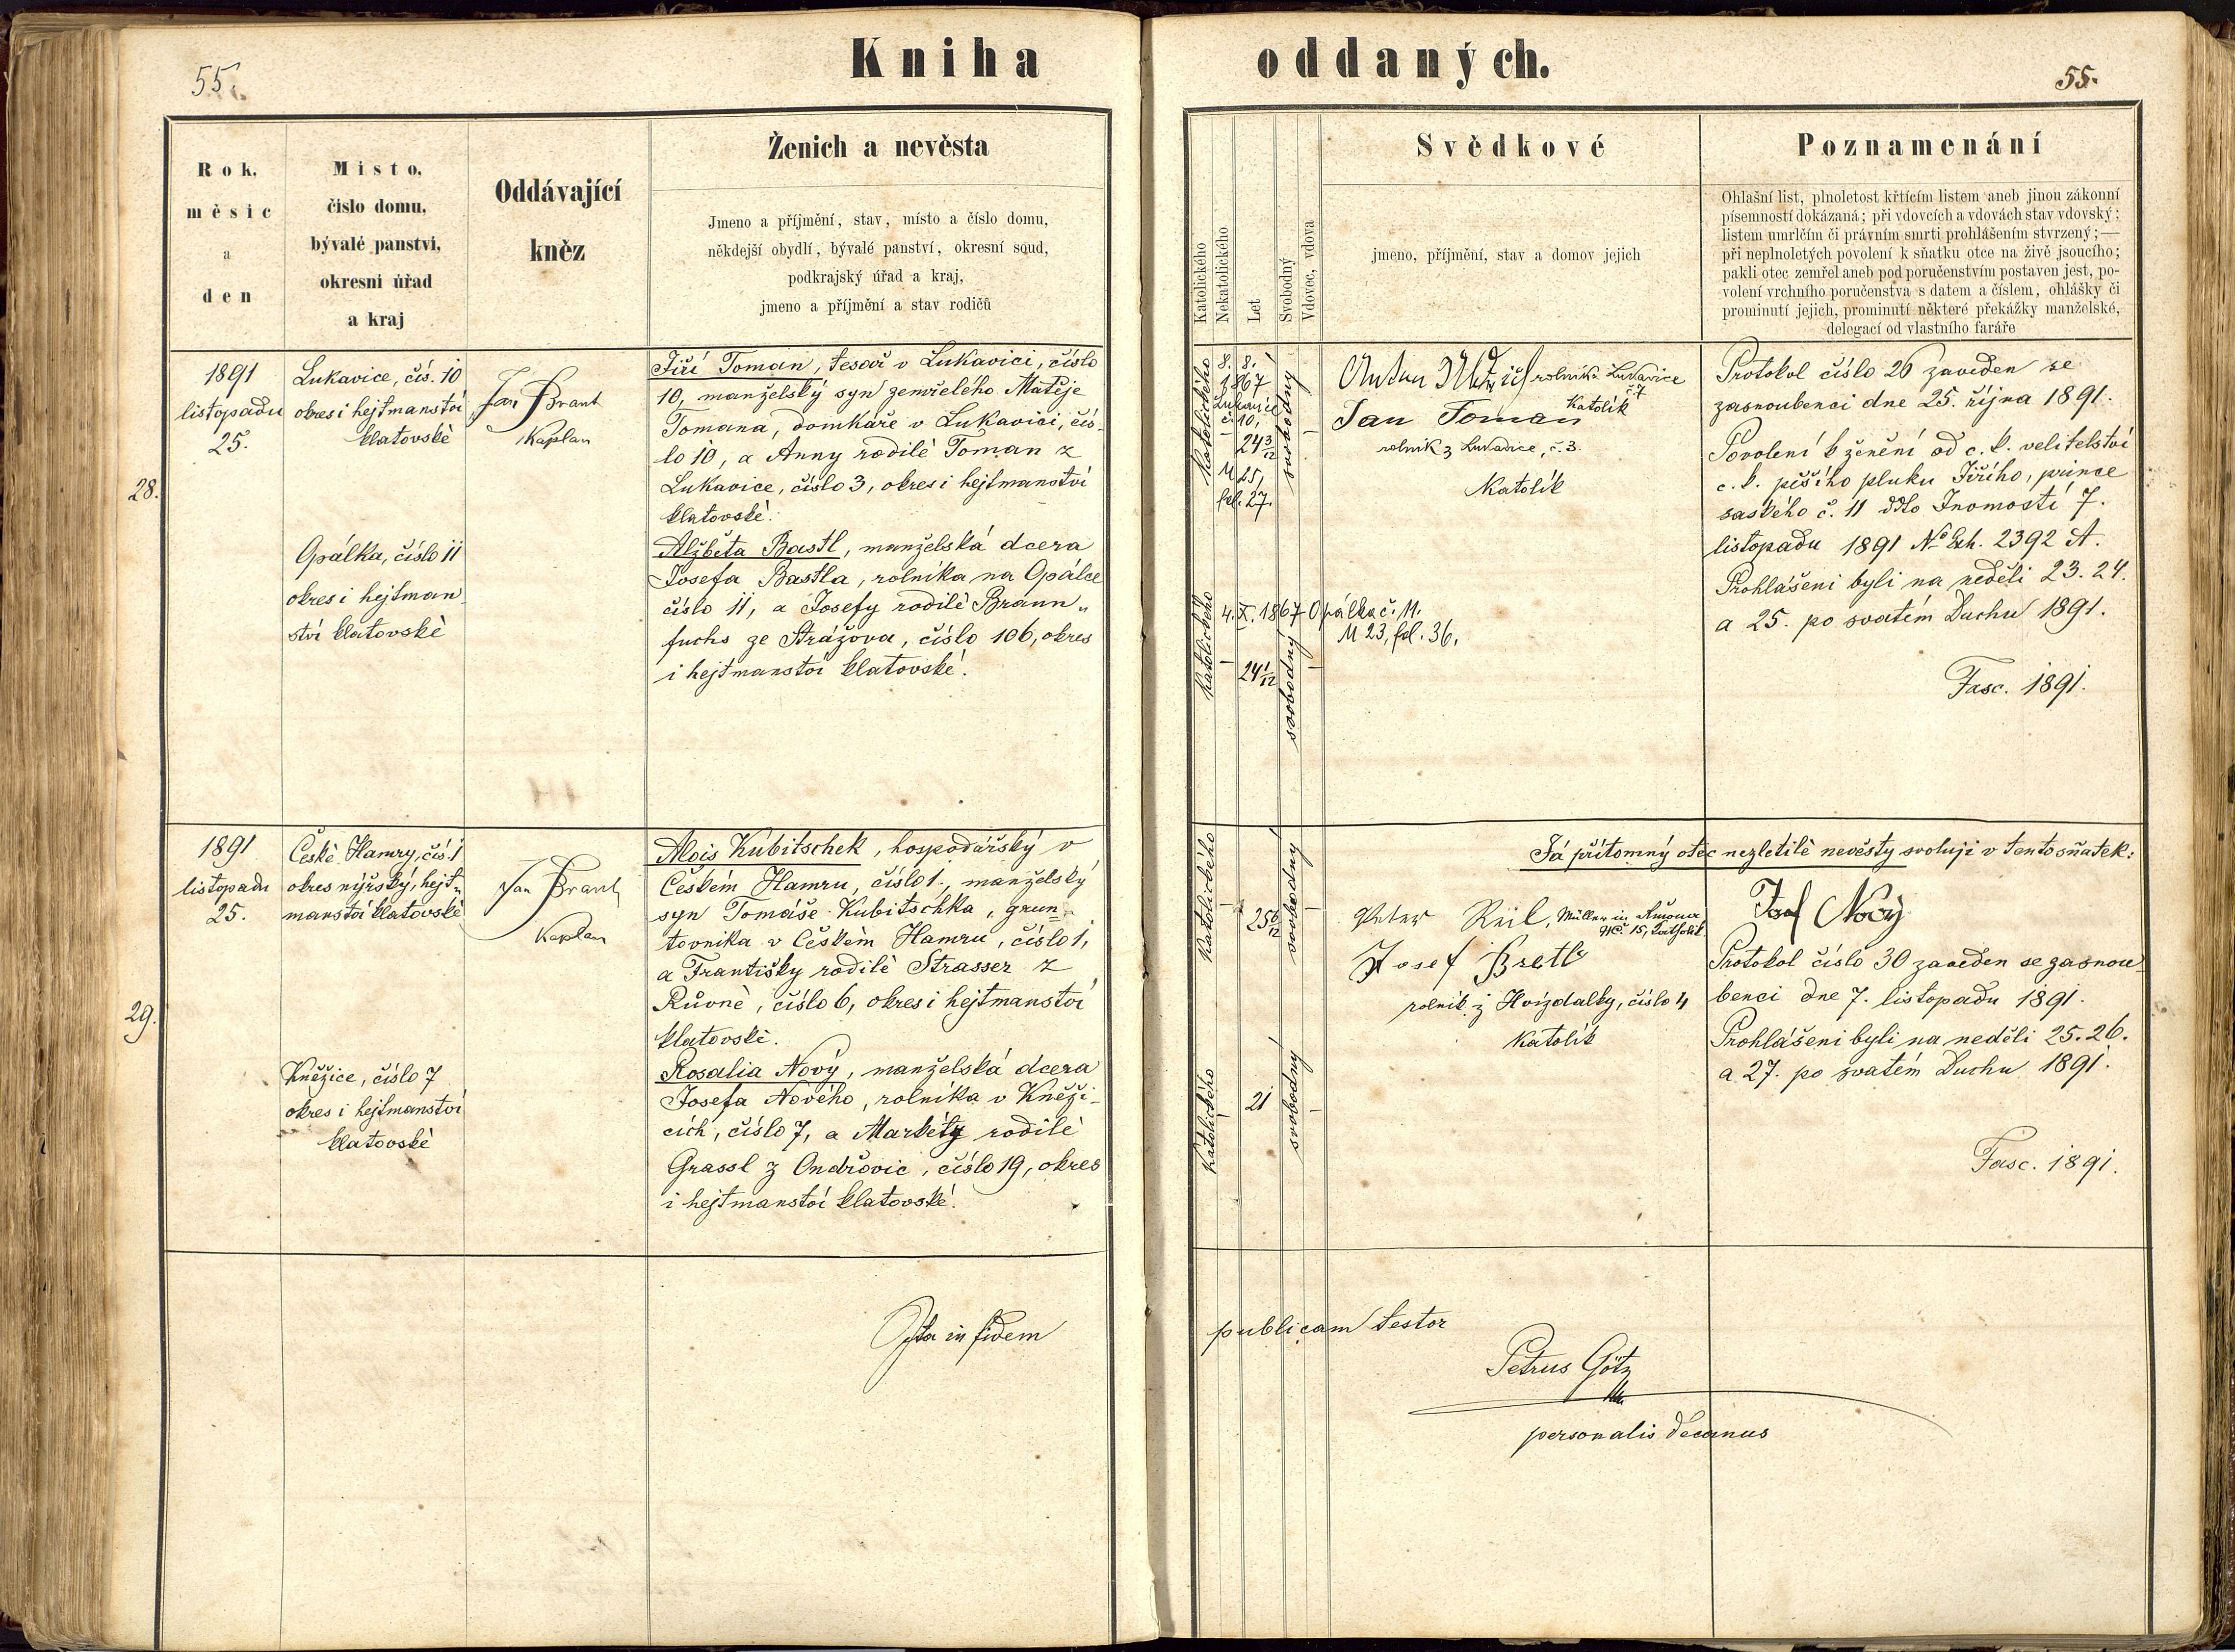 Kniha oddaných.
55.
55.
Rok,
měsíc
a
den
Místo,
číslo domu,
bývalé panství,
okresní úřad
a kraj
Oddávající
kněz
Ženich a nevěsta
Jmeno a příjmění, stav, místo a číslo domu,
někdejší obydlí, bývalé panství, okresní soud,
podkrajský úřad a kraj,
jmeno a příjmění a stav rodičů
Katolického
Nekatolického
Let
Svobodný
Vdovec, vdova
Svědkové
jmeno, příjmění, stav a domov jejich
Poznamenání
Ohlašní list, plnoletost křtícím listem aneb jinou zákonní
písemností dokázaná; při vdovcích a vdovách stav vdovský;
listem umrlčím či právním smrti prohlášením stvrzený;—
při neplnoletých povolení k sňatku otce na živě jsoucího;
pakli otec zemřel aneb pod poručenstvím postaven jest, po-
volení vrchního poručenstva s datem a číslem, ohlášky či
prominutí jejich, prominutí některé překážky manželské,
delegací od vlastního faráře
28.
1891
listopadu
25.
Lukavice, čís. 10
okres i hejtmanství
klatovské
Jan Brant
Kaplan
Jiří Toman, tesař v Lukavici, číslo
10, manželský syn zemřelého Matěje
Tomana, domkáře v Lukavici, čís-
lo 10, a Anny rodilé Toman z
Lukavice, číslo 3, okres i hejtmanství
klatovské.
Opálka, číslo 11
okres i hejtman-
ství klatovské
Alžběta Bastl, manželská dcera
Josefa Bastla, rolníka na Opálce
číslo 11, a Josefy rodilé Braun-
fuchs ze Strážova, číslo 106, okres
i hejtmanství klatovské.
katolického
8. 8.
1867
Lukavice
č. 10,
24 3/12
M 25,
fol. 27.
svobodný
Anton rolník Lukavice
č. 7
Katolík
Jan Toman
rolník z Lukavice, č. 3.
Katolík
Protokol číslo 26 zaveden se
zasnoubenci dne 25. října 1891.
Povolení k ženění od c. k. velitelství
c. k. pěšího pluku Jiřího, prince
saského č. 11 ddto Inomostí 7.
listopadu 1891 No Exh. 2392 A.
Prohlášeni byli na neděli 23. 24.
a 25. po svatém Duchu 1891.
Fasc. 1891.
katolického
4. X. 1867 Opálka č. 11.
M 23, fol. 36.
24 1/12
svobodný
29.
1891
listopadu
25.
České Hamry, čís. 1
okres nýrský, hejt-
manství klatovské
Jan Brant
Kaplan
Alois Kubitschek, hospodářský v
Českém Hamru, číslo 1., manželský
syn Tomáše Kubitschka, grun-
tovníka v Českém Hamru, číslo 1,
a Františky rodilé Strasser z
Růvné, číslo 6, okres i hejtmanství
klatovské.
Kněžice, číslo 7
okres i hejtmanství
klatovské
Rosalia Nový, manželská dcera
Josefa Nového, rolníka v Kněži-
cích, číslo 7, a Markéty rodilé
Grassl z Ondřovic, číslo 19, okres
i hejtmanství klatovské.
katolického
25 6/12
svobodný
Peter Müller in
No. 15, Katholik
Josef
rolník z Hvízdalky, číslo 4
Katolík
Já přítomný otec nezletilé nevěsty svoluji v tento sňatek:
Josef Nový
Protokol číslo 30 zaveden se zasnou-
benci dne 7. listopadu 1891.
Prohlášeni byli na neděli 25. 26.
a 27. po svatém Duchu 1891.
Fasc. 1891.
katolického
21
svobodný
Ita in fidem publicam testor
Petrus Götz
personalis decanus